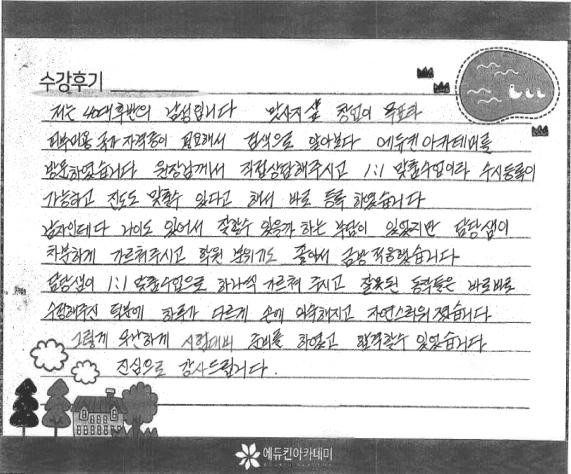 수강후기
저는 40대후반의 남성입니다 맛사지샵 창업이 목표라
피부미용 국가 자격증이 필요해서 검색으로 알아보다 에듀킨아카데미를
방문하였습니다 원장님께서 직접상담해주시고 1:1 맞춤수업이라 수시등록이
가능하고 진도도 맞출수 있다고 해서 바로 등록 하였습니다
남자인데다 나이도 있어서 잘할수 있을가 하는 부담이 있었지만 담당샘이
차분하게 가르쳐주시고 학원 분위기도 좋아서 금방 적응했습니다
담당샘의 1:1 맞춤수업으로 하나씩 가르쳐 주시고 잘못된 동작들은 바로바로
수정해주신 덕분에 하루가 다르게 손에 익숙해지고 자연스러워 졌습니다
그렇게 무난하게 시험대비 준비를 하였고 합격할수 있었습니다
진심으로 감사드립니다.
에듀킨아카데미